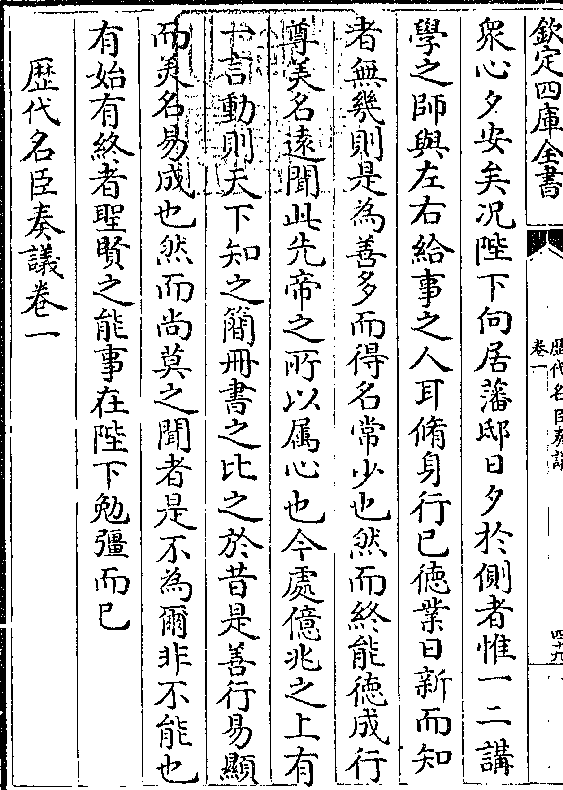 欽定四庫全書
歴代名臣奏議
卷一
四十九
衆心夕安矣况陛下向居藩邸日夕於側者惟一二講
學之師與左右給事之人耳脩身行已徳業日新而知
者無幾則是為善多而得名常少也然而終能徳成行
尊美名逺聞此先帝之所以屬心也今處億兆之上有
一言動則天下知之簡冊書之比之於昔是善行易顯
而美名易成也然而尚莫之聞者是不為爾非不能也
有始有終者聖賢之能事在陛下勉彊而已
歴代名臣奏議卷一